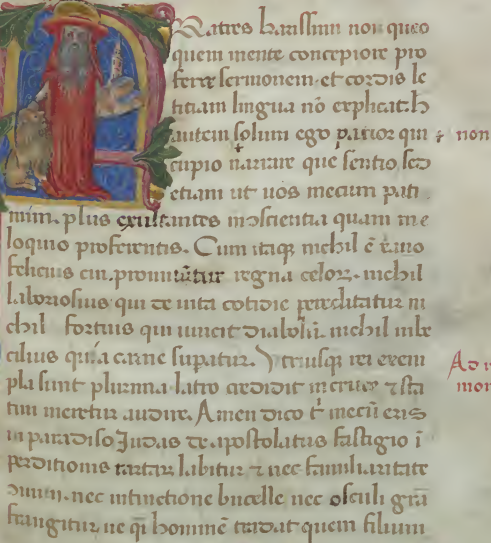 Ratres karissimi non queo
quem mente concepiore pro
ferre sermonem. et cordis le
titiam lingua nō explicat. h̄
autem solum ego patior qui
cupio narrare que sentio sed
etiam ut uos mecum pati
mini. plus exultantes īnscientia quam me
loquio proferentis. Cum itaqȝ nichil ē
felicius cui promittitur regna celoꝝ. nichil
laboriosius qui de uita cotidie periclitatur ni
chil fortius qui uincit diabolū. nichil inbe
cilius qui a carne supatur. Vtriusqȝ rei exem
pla sunt plurima. latro credidit in cruce ⁊ sta
tim meretur audire. Amen dico t̄ mecū eris
in paradiso Judas de apostolatus fastigio ī
perditionis tartarū labitur ⁊ nec familiaritate
nec intinctione bucelle nec osculi grā
frangitur ne qͥ hominē tradat quem filium
non
Ad
mon